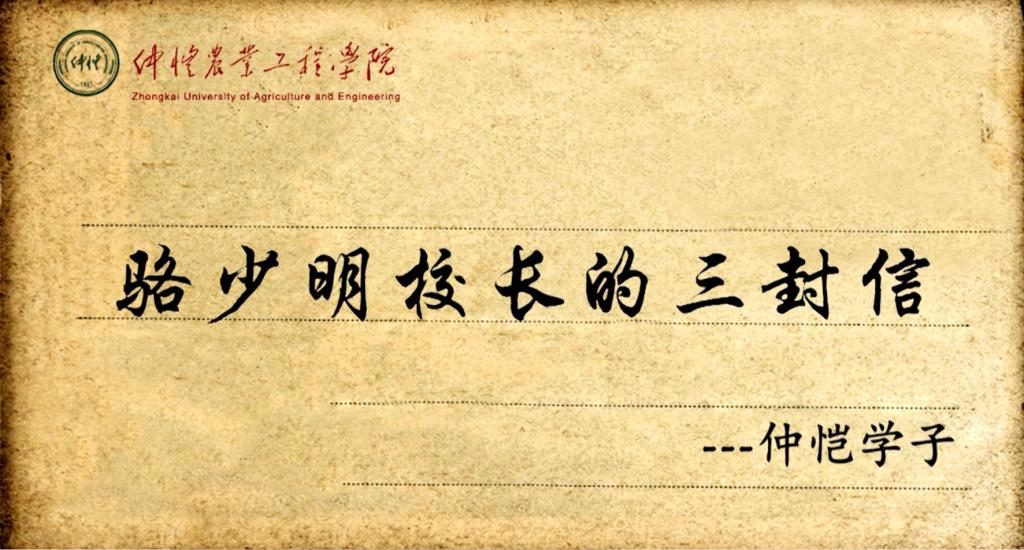 仲恺
仲恺農業工程學院
Zhongkai University of Agriculture and Engineering
骆少明校长的三封信
---仲恺学子